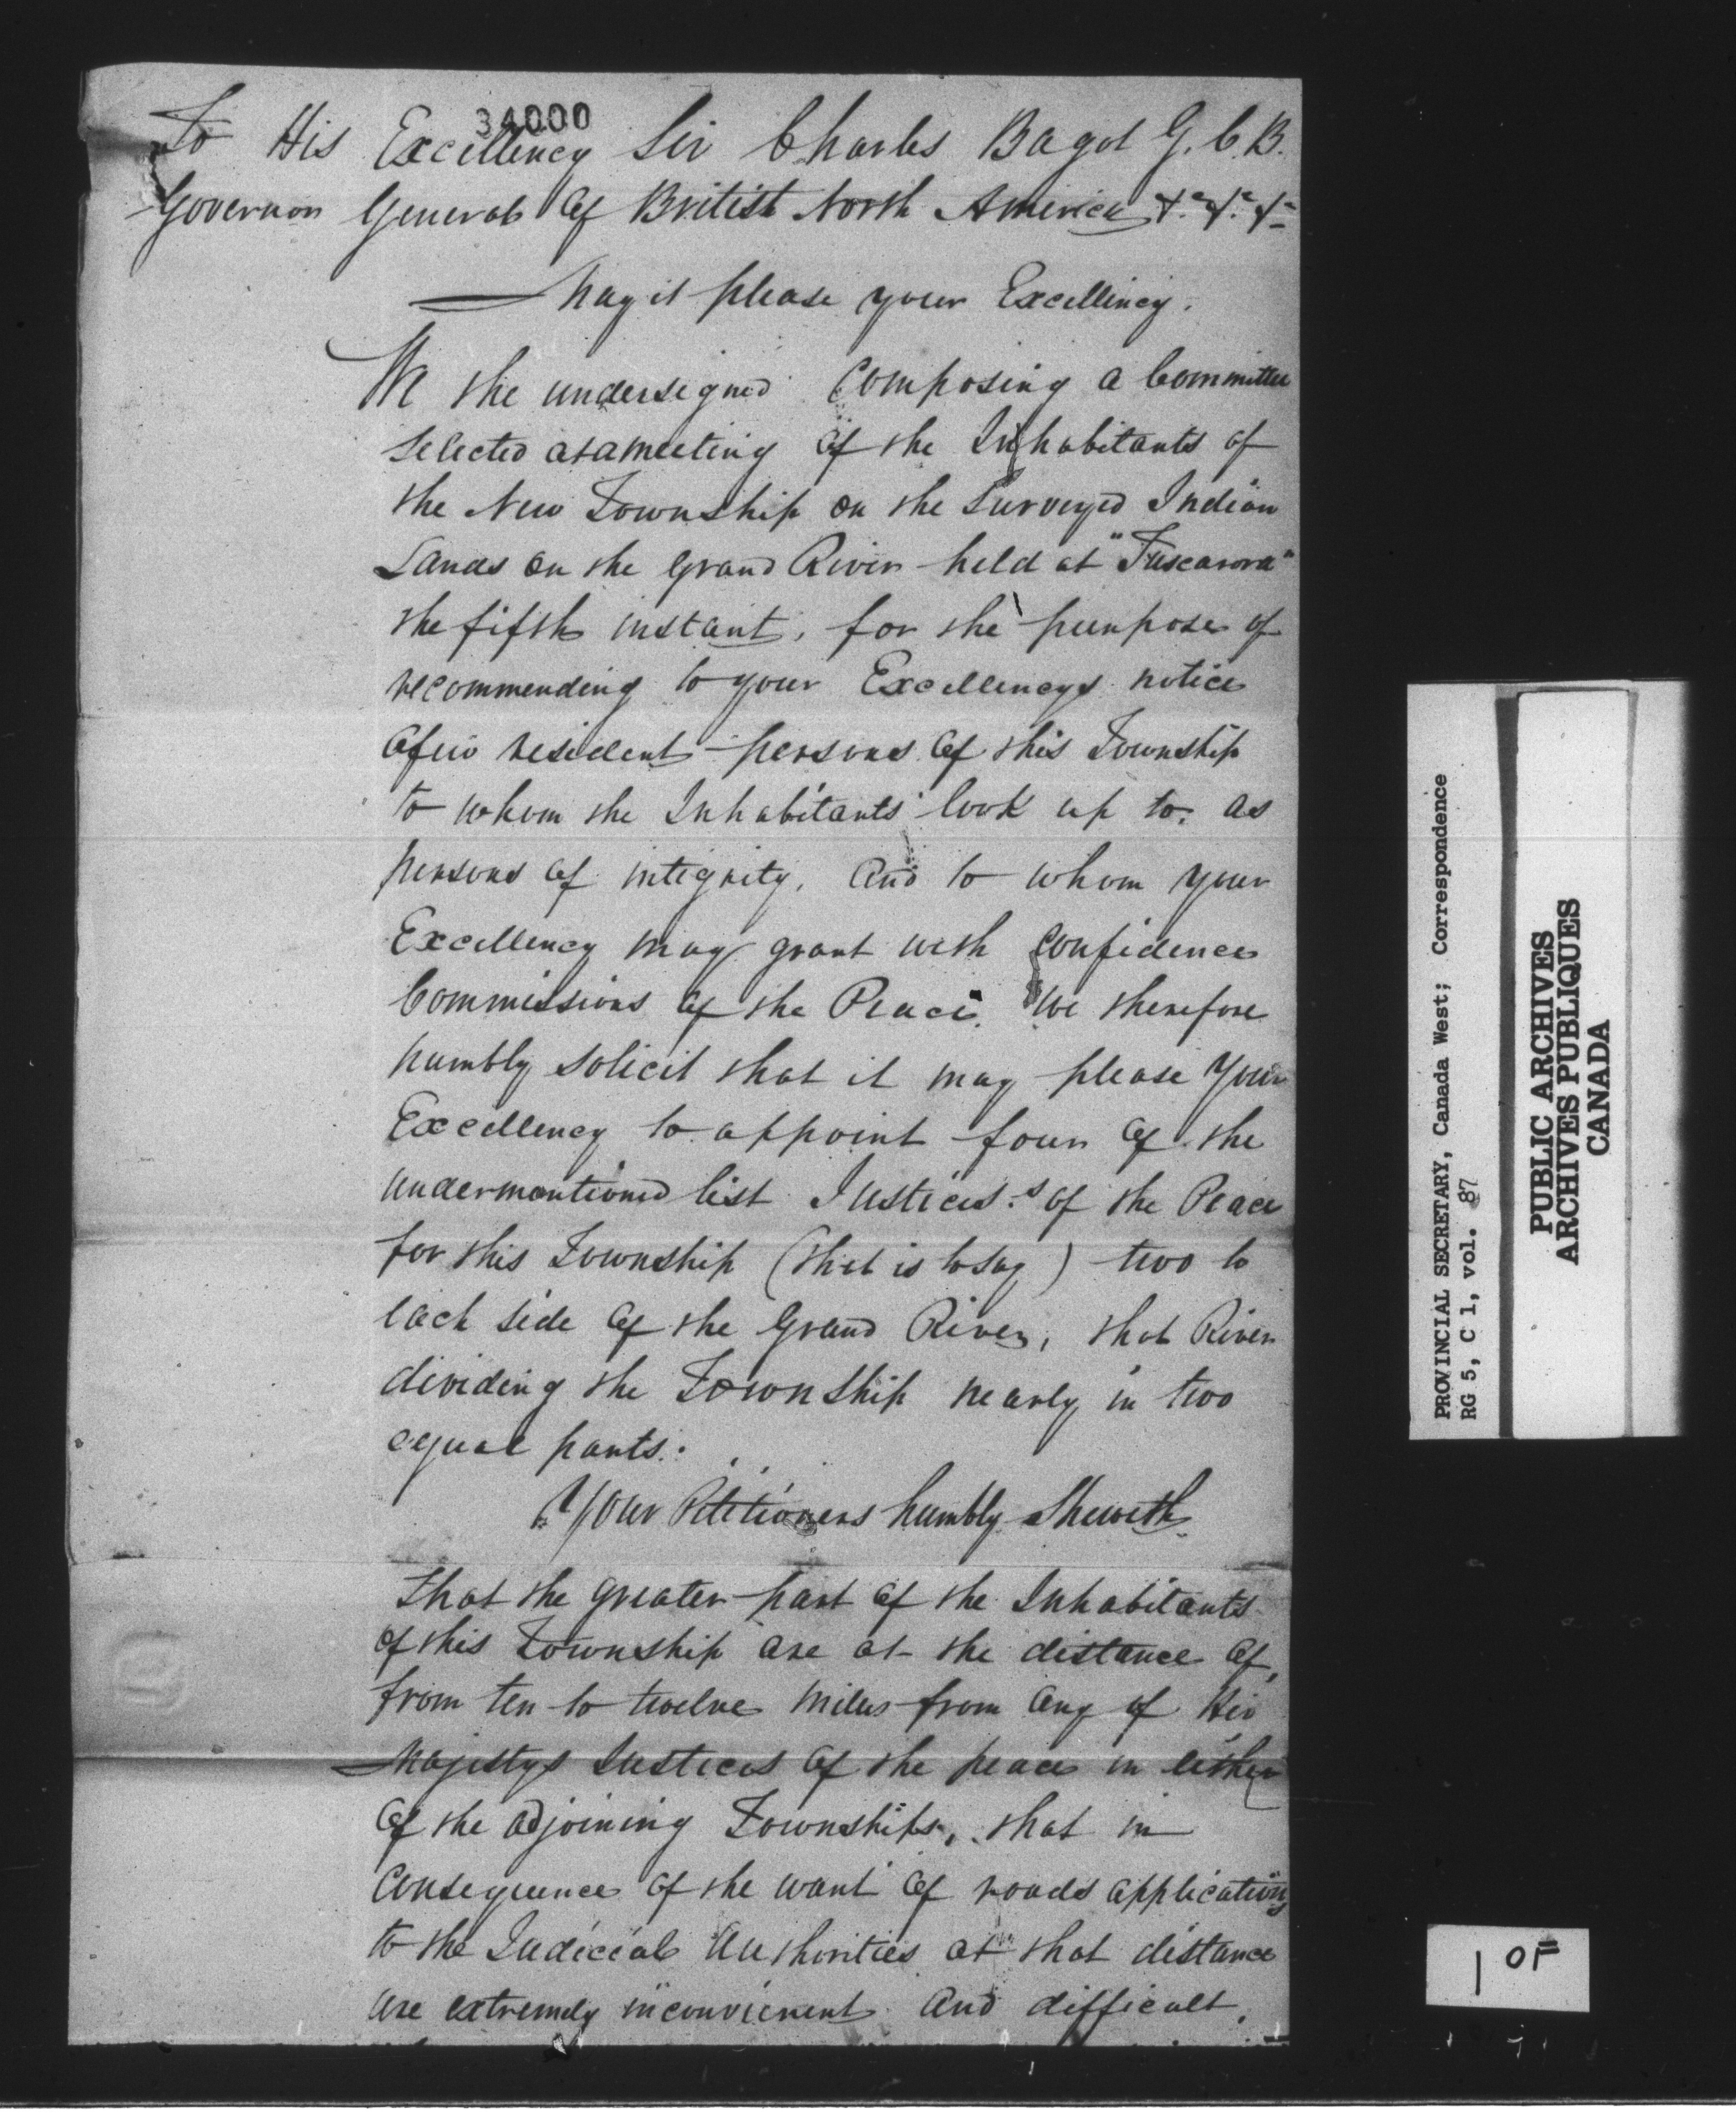 34000
To His Excellency Sir Charles Bagot G.C.B.
Governor General of British North America &c &c &c
May it please your Excellincy.
We the undersigned Composing a Committee
Selected at a meeting of the Inhabitants of
the New Township on the Surveyed Indian
Lands on the Grand River held at "Tuscarora"
the fifth instant, for the purpose of
recommending to your Excellencys notice
a few resident persons of this Township
to whom the Inhabitants look up to, as
persons of integrity, and to whom your
Excellency may grant with Confidence
Commissions of the Peace. We therefore
humbly Solicit that it may please Your
Excellency to appoint four of the
undermentioned list Justices.s of the Peace
for this Township (that is to say) two to
each side of the Grand River, that River
dividing the Township nearly in two
equal parts.
Your Petitioners humbly Sheweth
That the greater part of the Inhabitants
of this Township are at the distance of,
from ten to twelve Miles from any of Her
Majestys Justices of the peace in either
of the adjoining Townships, that in
Consequence of the want of roads applications
to the Judicial Authorities at that distance
are extremely inconvienent and difficult,
PROVINCIAL SECRETARY, Canada West; Correspondence
RG 5, C 1, vol. 87
PUBLIC ARCHIVES
ARCHIVES PUBLIQUES
CANADA
1 OF